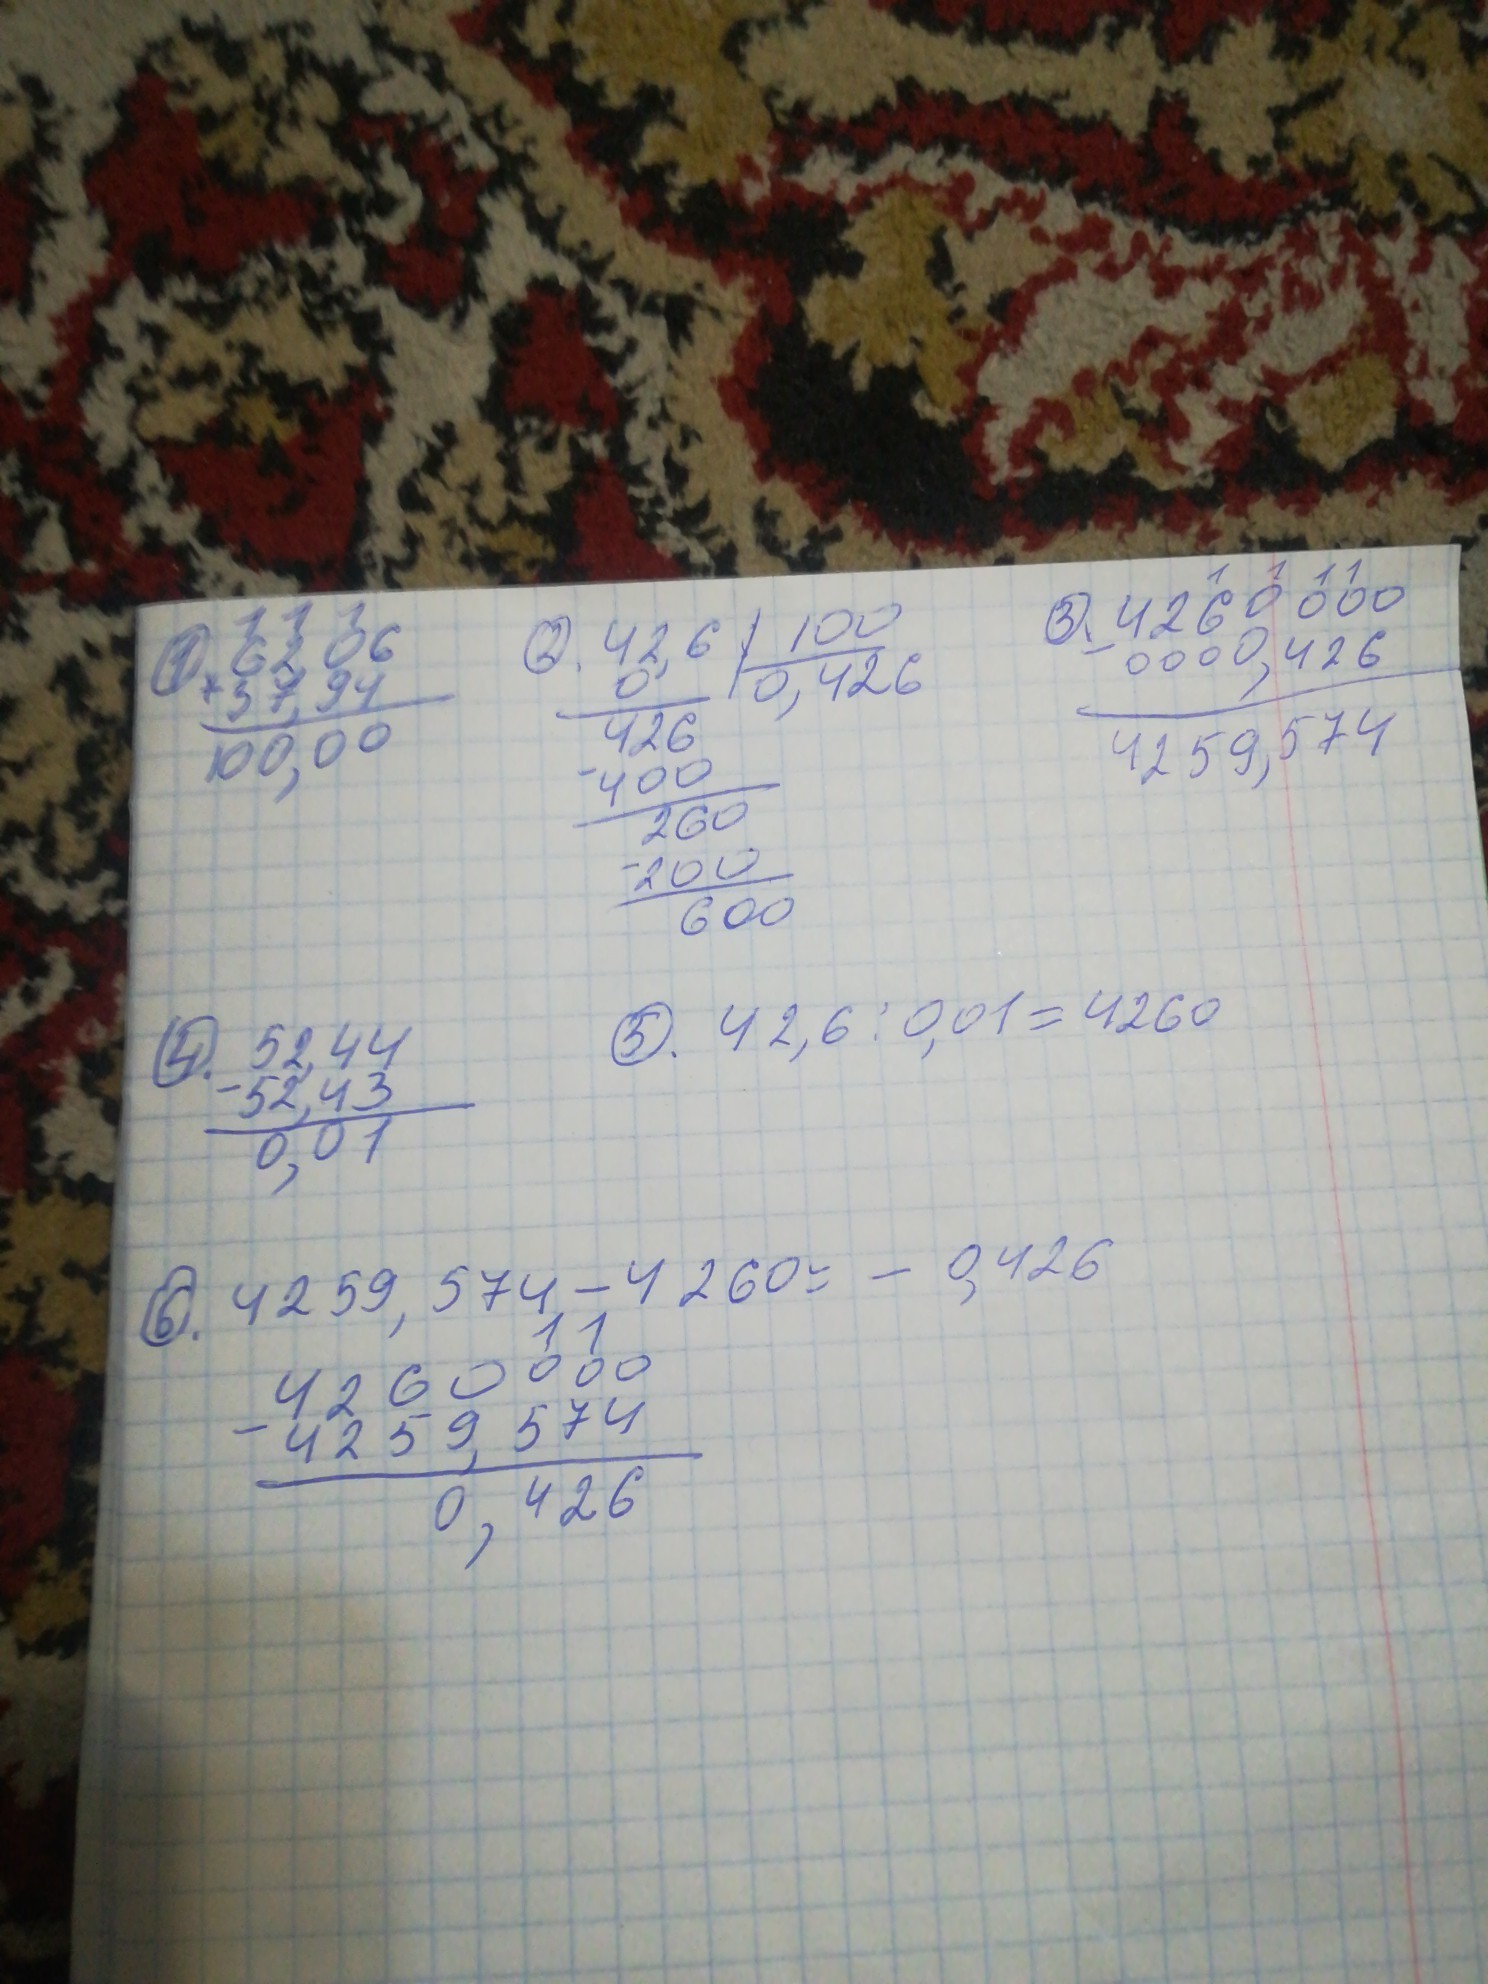 1 1 1
①. 62 06
+ 37,94
100,00
②. 42,6 | 100
0 0,426
426
- 400
260
- 200
600
1 1 1 1
③. 4260 000
- 0000,426
4259,574
④. 52,44
- 52,43
0,01
⑤. 42,6 : 0,01 = 4260
⑥. 4259,574 - 4260 = - 0,426
1 1
4260 000
- 4259,574
0,426